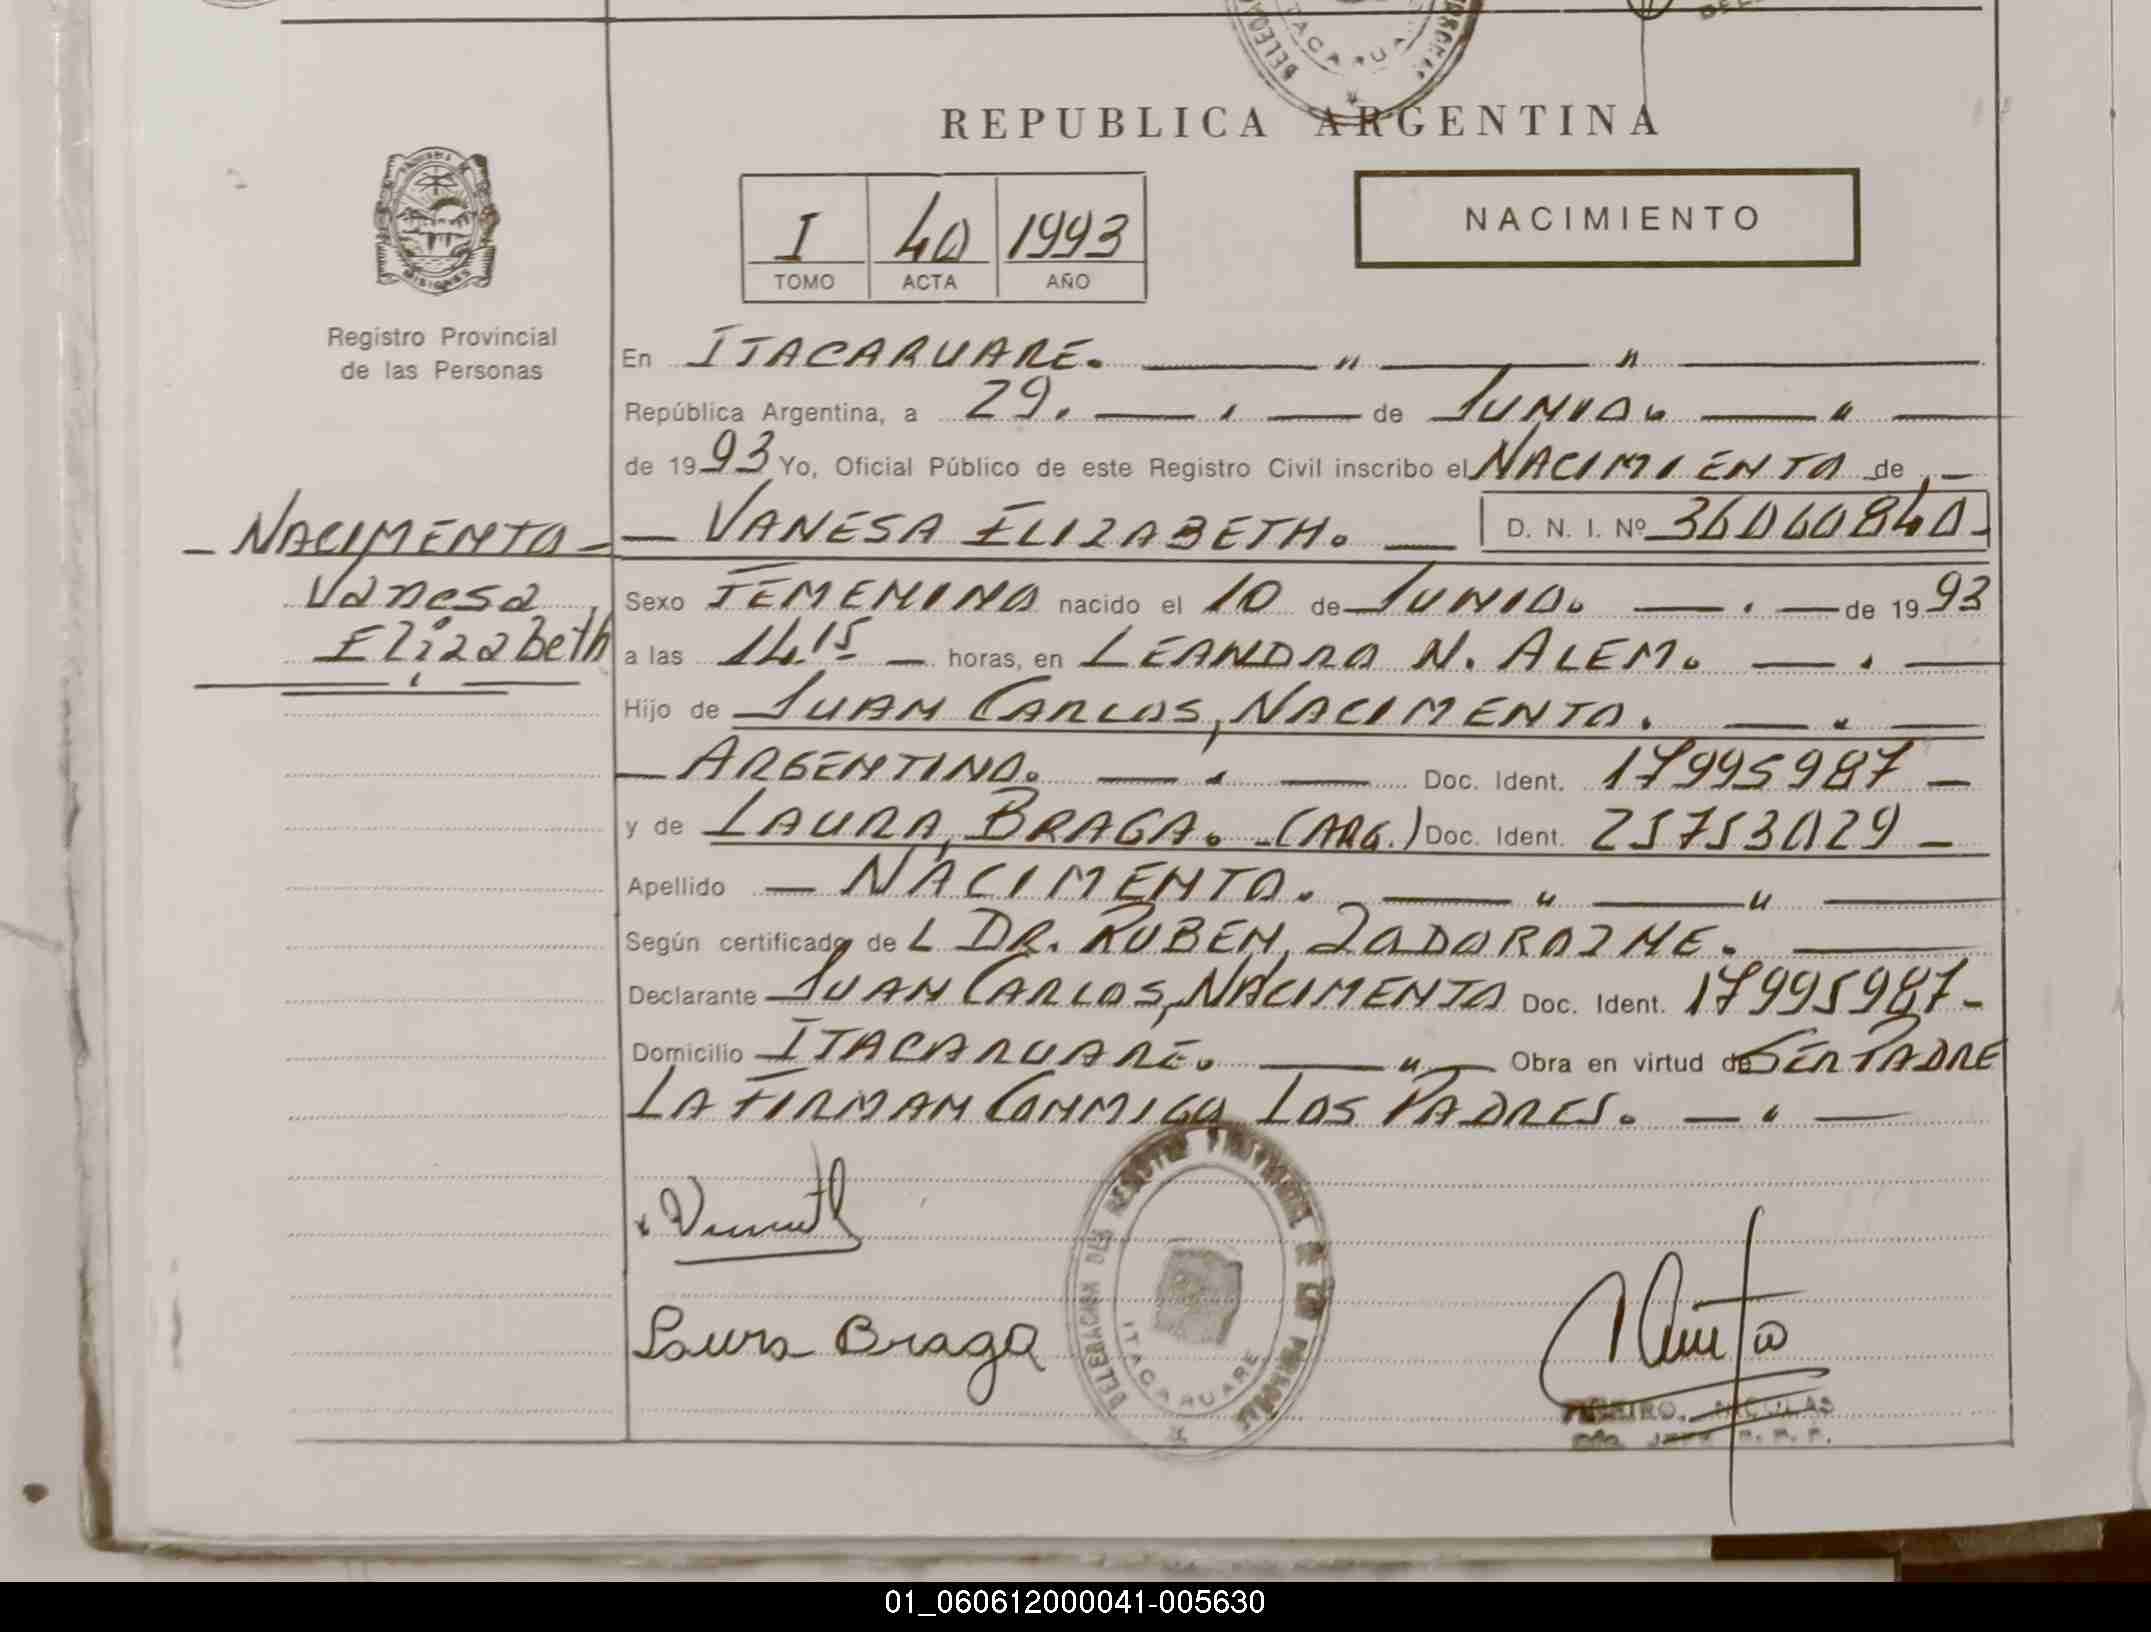 REPUBLICA ARGENTINA
I 40 1993
TOMO ACTA AÑO
NACIMIENTO
Registro Provincial
de las Personas
En ITACARUARE.
República Argentina, a 29. de JUNIO.
de 1993 Yo, Oficial Público de este Registro Civil inscribo el NACIMIENTO de
VANESA ELIZABETH. D. N. I. Nº 36060840
NACIMENTO
Vanesa
Elizabeth
Sexo FEMENINO nacido el 10 de JUNIO. de 1993
a las 14.15 horas, en LEANDRO N. ALEM.
Hijo de JUAN CARLOS, NACIMENTO.
ARGENTINO. Doc. Ident. 17995987
y de LAURA, BRAGA. (ARG.) Doc. Ident. 25753029
Apellido NACIMENTO.
Según certificado de L DR. RUBEN,
Declarante JUAN CARLOS, NACIMENTO Doc. Ident. 17995987
Domicilio ITACARUARE. Obra en virtud de SER PADRE
LA FIRMAN CONMIGO LOS PADRES.
Laura Braga
DELEGACION DEL REGISTRO PROVINCIAL DE LAS PERSONAS
ITACARUARE
NICOLAS
01_060612000041-005630